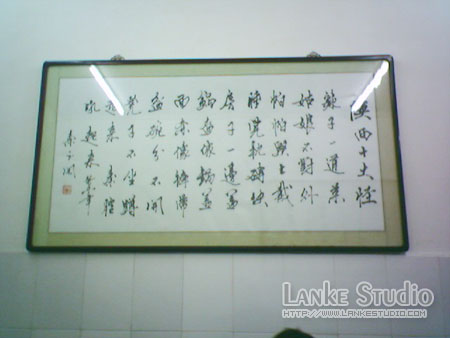 陕西十大怪
辣子一道菜
姑娘不对外
帕帕头上戴
睡觉枕砖块
房子一边盖
锅盔像锅盖
面条像裤带
盆碗分不开
凳子不坐蹲
起来秦腔
吼起来
LANKE STUDIO
HTTP://WWW.LANKESTUDIO.COM